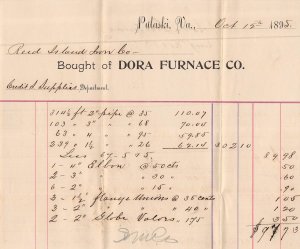 Pulaski, Va., Oct 15th 1895.
Reed Island Iron Co
Bought of DORA FURNACE CO.
Credit & Supplies Department.
314½ ft 2" pipe @ 35 110.07
103 " 3" " " 68 70.04
63 " 4" " " 95 59.85
239 " 1½ " 26 62.14 302 10
Less 67 - 5 + 5 89 98
1 - 4" Elbow @ 50cts 50
2 - 3" " " 30 60
6 - 2" " " 15 90
2 - 1½" flange Unions @ 35 cents
2 - 2" Globe Valves, 175 3 50